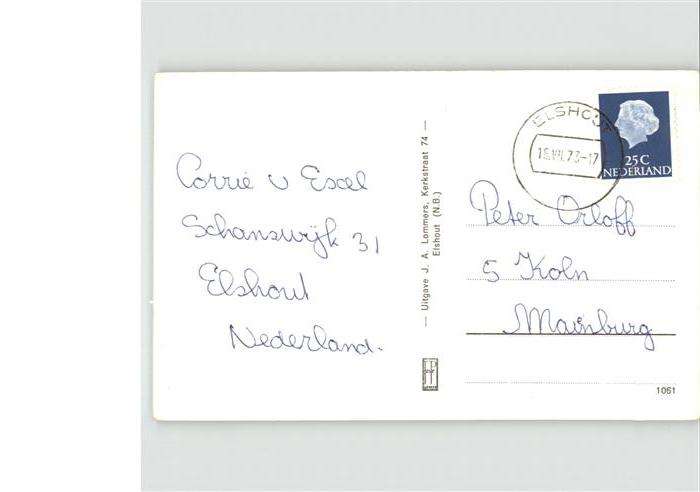 Corrie v Esael
Schanswijk 31
Elshout
Nederland.
— Uitgave J. A. Lommers, Kerkstraat 74 —
Elshout (N.B.)
ELSHOUT
25C
NEDERLAND
Peter Orloff
5 Koln
Mainburg
1061